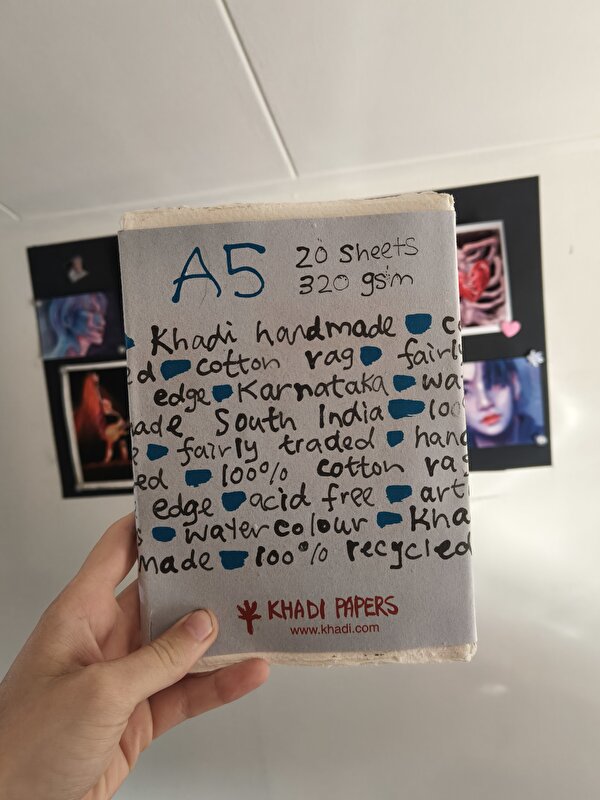 A5
20 sheets
320 gsm
Khadi handmade c
ed cotton rag fairly
edge Karnataka wa
made South India 100
e fairly traded hand
ed 100% cotton rag
edge acid free art
s watercolour Kha
made 100% recycled
KHADI PAPERS
www.khadi.com